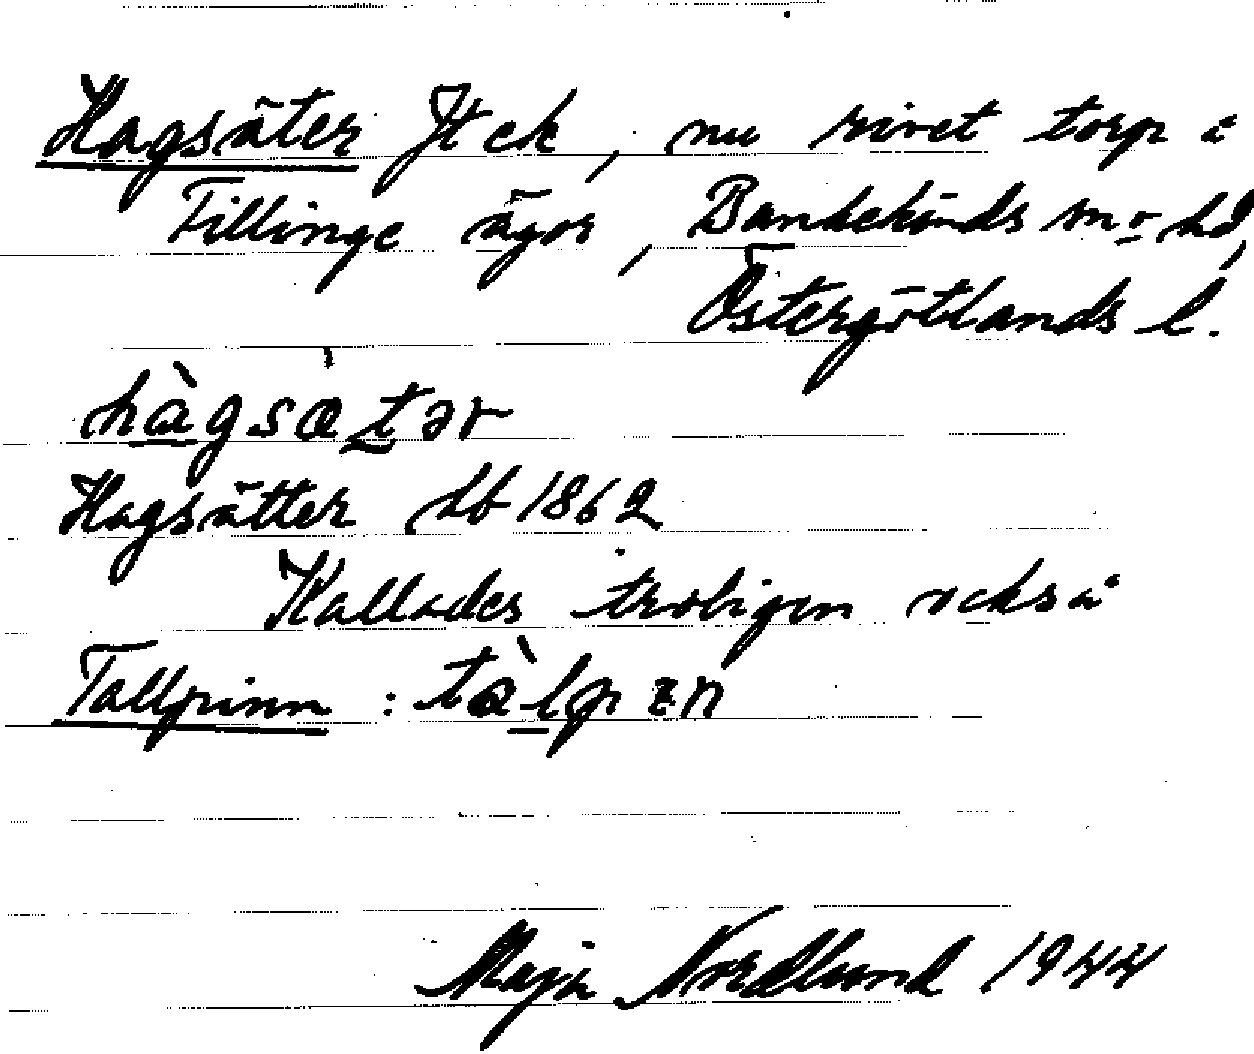 Hagsäter Jt ek, nu rivet torp i
Fillinge ägor, Bankekinds sn o hd,
Östergötlands l.
hàgsætər
Hagsätter hb 1862
Kallades troligen också
Tallpinn : tàlpɪn
Maja Nordlund 1944